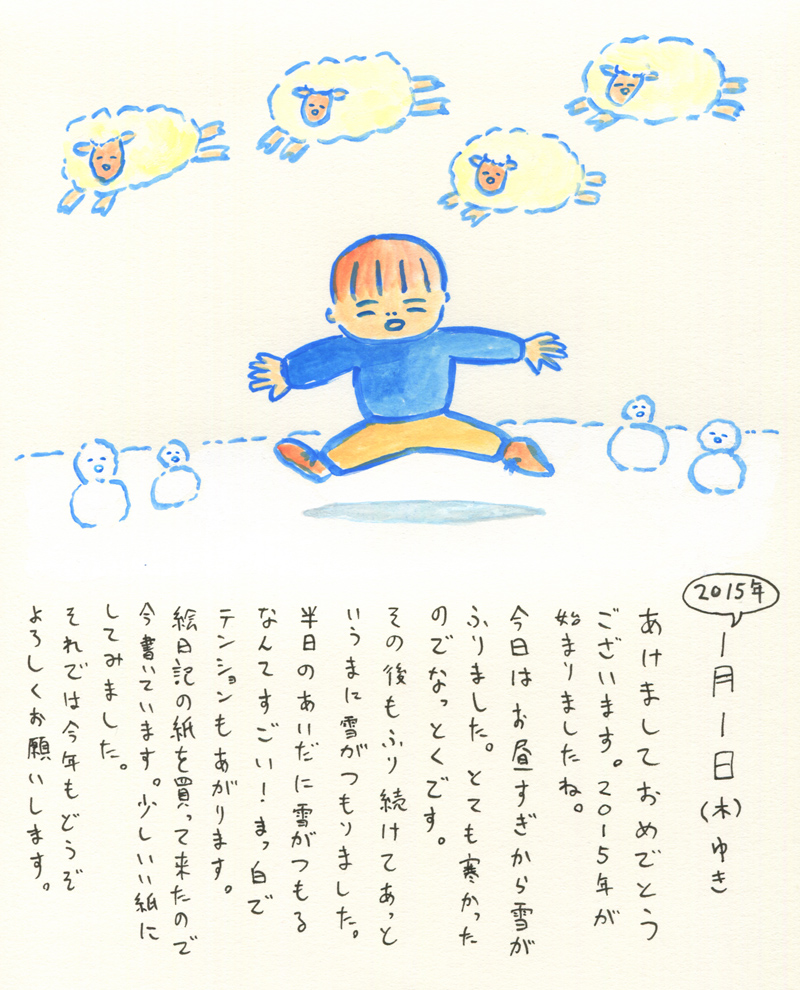 2015年
1月1日(木)ゆき
あけましておめでとう
ございます。2015年が
始まりましたね。
今日はお昼すぎから雪が
ふりました。とても寒かった
のでなっとくです。
その後もふり続けてあっと
いうまに雪がつもりました。
半日のあいだに雪がつもる
なんてすごい!まっ白で
テンションもあがります。
絵日記の紙を買って来たので
今書いています。少しいい紙に
してみました。
それでは今年もどうぞ
よろしくお願いします。